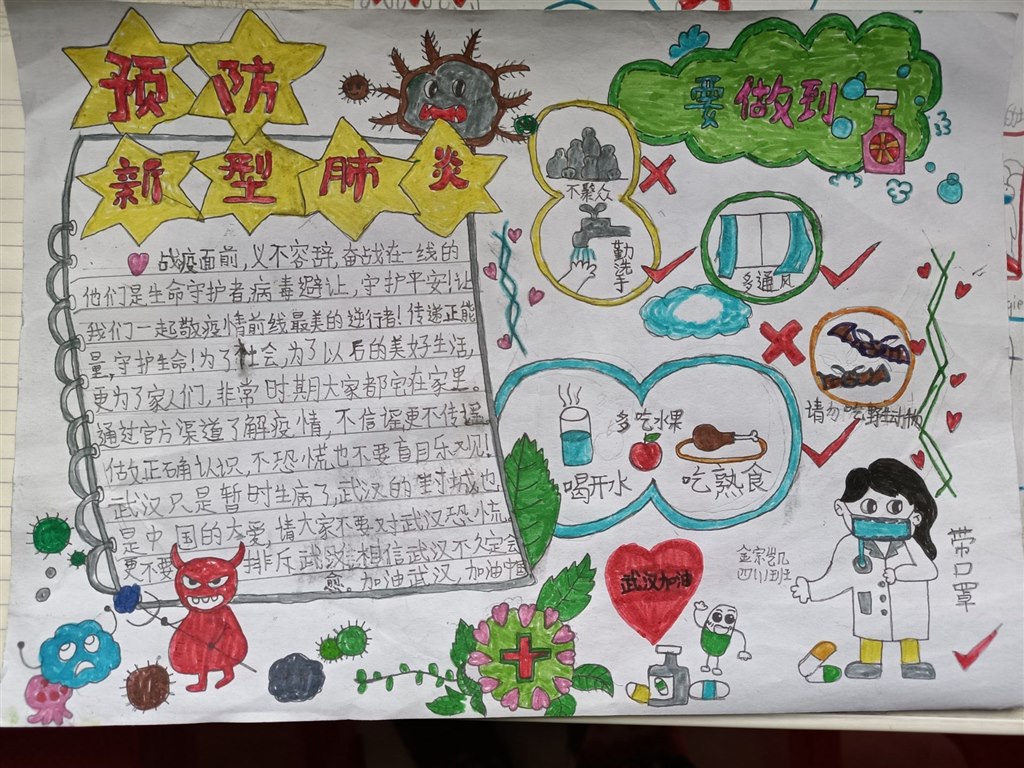 预防
新型肺炎
战疫面前,义不容辞,奋战在一线的
他们是生命守护者,病毒避让,守护平安!让
我们一起敬疫情前线最美的逆行者!传递正能
量,守护生命!为了社会,为了以后的美好生活,
更为了家人们,非常时期大家都宅在家里。
通过官方渠道了解疫情,不信谣更不传谣
做正确认识,不恐慌也不要盲目乐观!
武汉只是暂时生病了,武汉的封城也
是中国的大爱,请大家不要对武汉恐慌。
更不要排斥武汉,相信武汉不久定会
愈。加油武汉,加油中国
要做到
不聚众
勤洗手
多通风
请勿吃野生动物
多吃水果
喝开水
吃熟食
武汉加油
四(1)班
带口罩